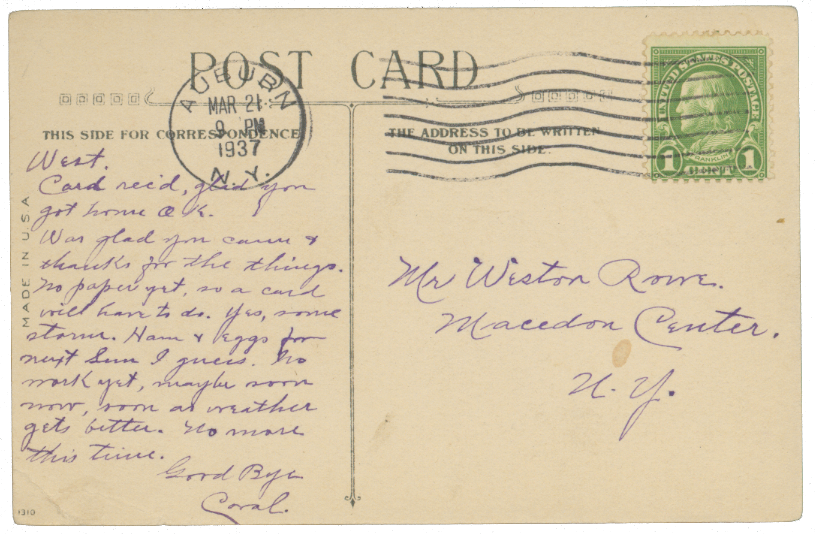 POST CARD
AUBURN
MAR 21
9 PM
1937
N.Y.
UNITED STATES POSTAGE
FRANKLIN
1 CENT 1
THIS SIDE FOR CORRESPONDENCE
THE ADDRESS TO BE WRITTEN
ON THIS SIDE.
MADE IN U.S.A
West.
Card rec'd, glad you
got home O.K.
Was glad you came &
thanks for the things.
No paper yet, so a card
will have to do. Yes, some
storm. Ham & Eggs for
next Sun I guess. No
work yet, maybe soon
now, soon as weather
gets better. No more
this time.
Good Bye
Coral.
Mr Weston Rowe.
Macedon Center.
N. Y.
1310